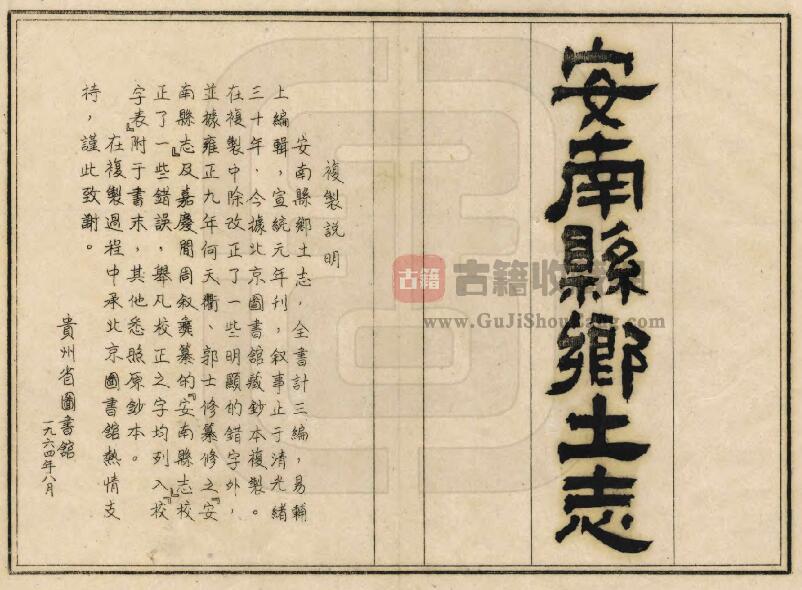 安南縣鄉土志
複製説明
安南縣鄉土志，全書計三編，易輔
上編輯，宣統元年刊，叙事止于清光緒
三十年，今據北京圖書舘藏鈔本複製。
在複製中除改正了一些明顯的錯字外，
並據雍正九年何天衢、郭士修纂修之『安
南縣志』及嘉慶間周叙彝纂的『安南縣志』校
正了一些錯誤，舉凡校正之字均列入『校
字表』附于書末，其他悉照原鈔本。
在複製過程中承北京圖書舘熱情支
持，謹此致謝。
貴州省圖書舘
一九六四年八月
古籍
古籍收
www.GuJiShouCang.com